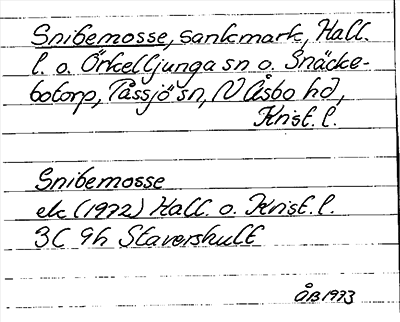 Snibemosse, sankmark, Hall.
l. o. Örkelljunga sn o. Snäcke-
botorp, Tåssjö sn, N Åsbo hd,
Krist. l.
Snibemosse
ek (1972) Hall. o. Krist. l.
3C 9h Stavershult
ÅB 1973